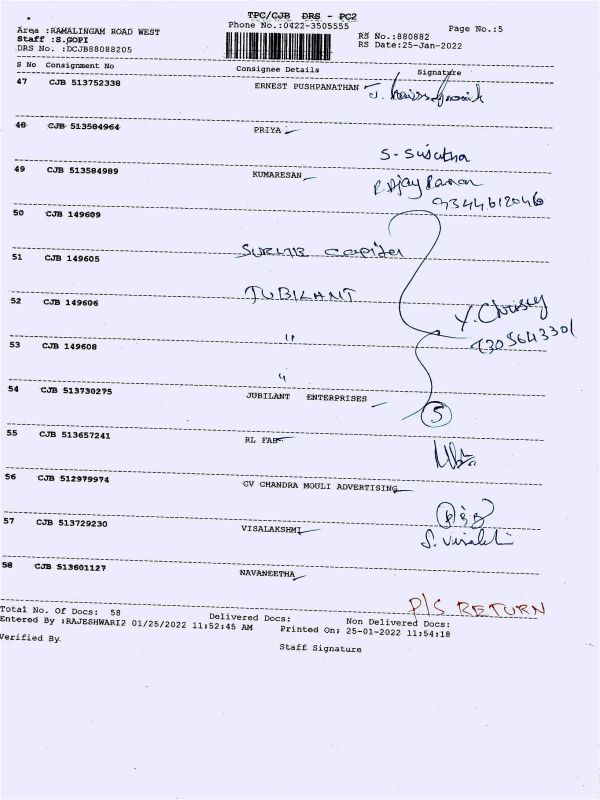 TPC/CJB DRS - PC2
Phone No.:0422-3505555
Page No.:5
Area :RAMALINGAM ROAD WEST
Staff :S.GOPI
DRS No. :DCJB88088205
RS No.:880882
RS Date:25-Jan-2022
S No Consignment No Consignee Details Signature
47 CJB 513752338 ERNEST PUSHPANATHAN
48 CJB 513584964 PRIYA
S. Susutha
49 CJB 513584989 KUMARESAN
R. Ajay
9344612046
50 CJB 149609
51 CJB 149605
52 CJB 149606 JUBILANT
Y. Chrissy
7305643301
53 CJB 149608 "
"
54 CJB 513730275 JUBILANT ENTERPRISES
5
55 CJB 513657241 RL FAB
56 CJB 512979974 CV CHANDRA MOULI ADVERTISING
57 CJB 513729230 VISALAKSHMI
58 CJB 513601127 NAVANEETHA
P/S RETURN
Total No. Of Docs: 58 Delivered Docs: Non Delivered Docs:
Entered By :RAJESHWARI2 01/25/2022 11:52:45 AM Printed On: 25-01-2022 11:54:18
Verified By
Staff Signature